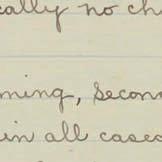 cally no ch
ming, Secon
in all cases